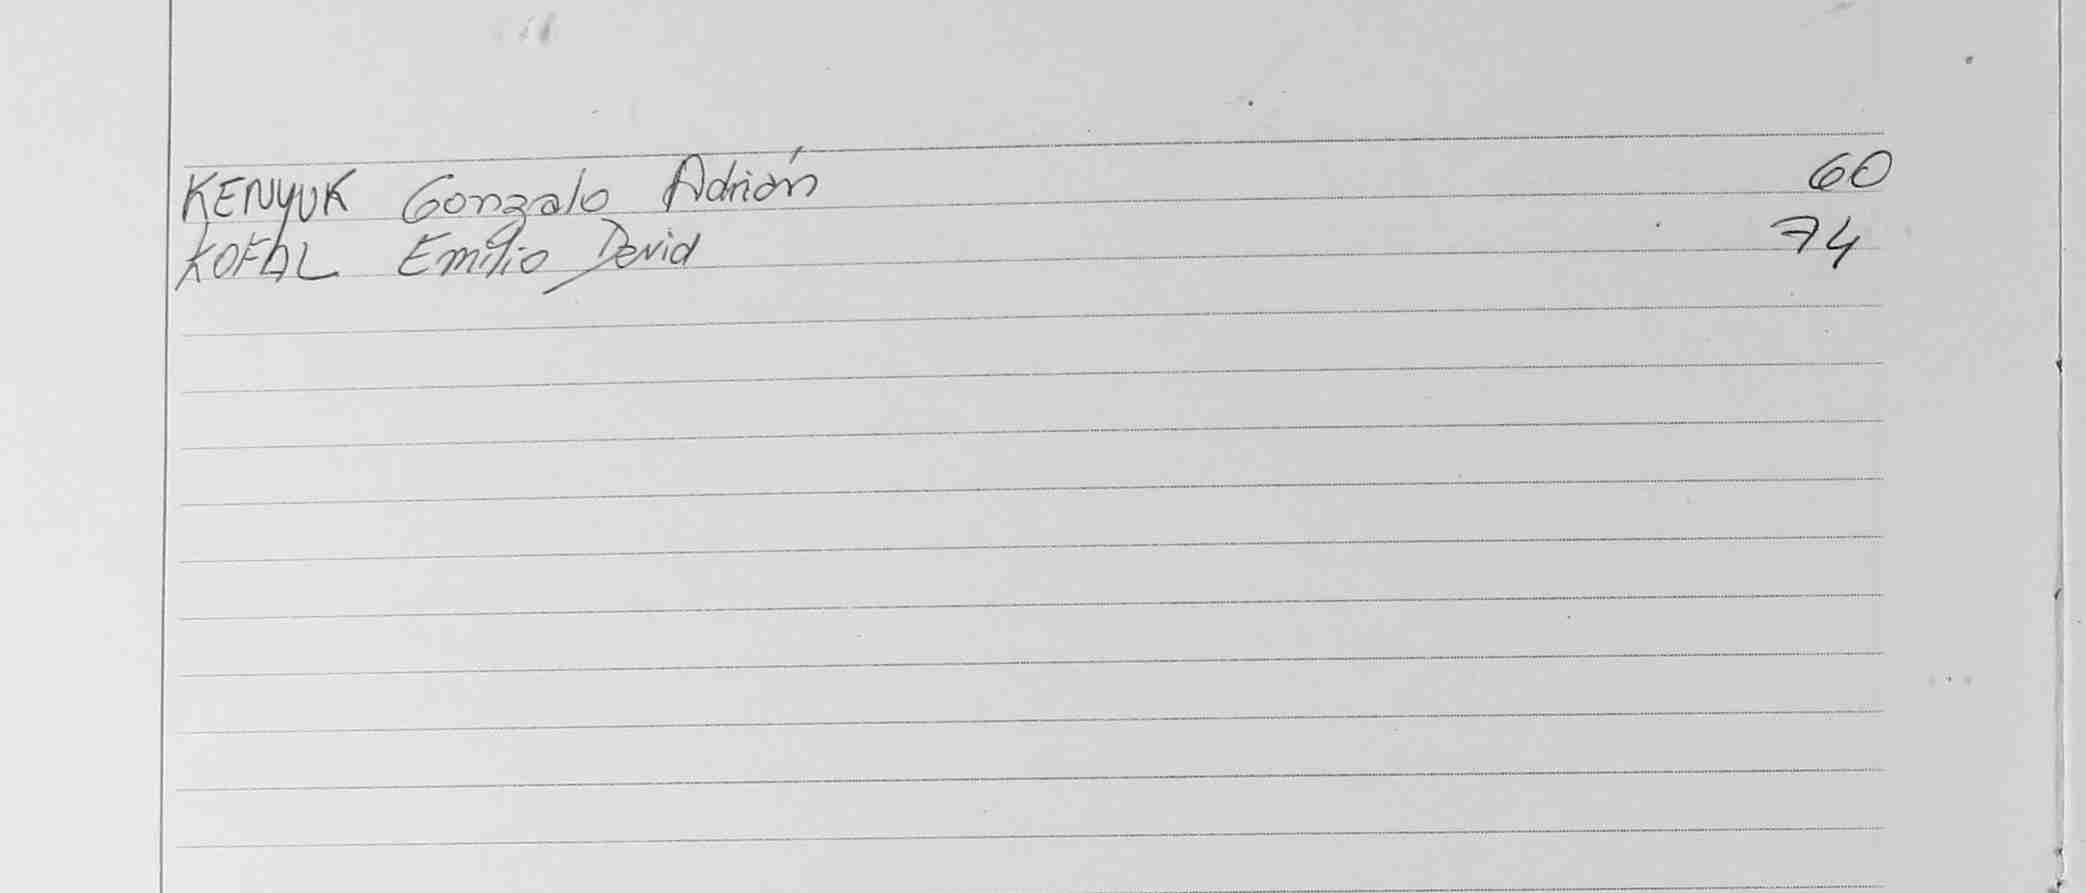 KENYUK Gonzalo Adrián 60
KOFAL Emilio David 74